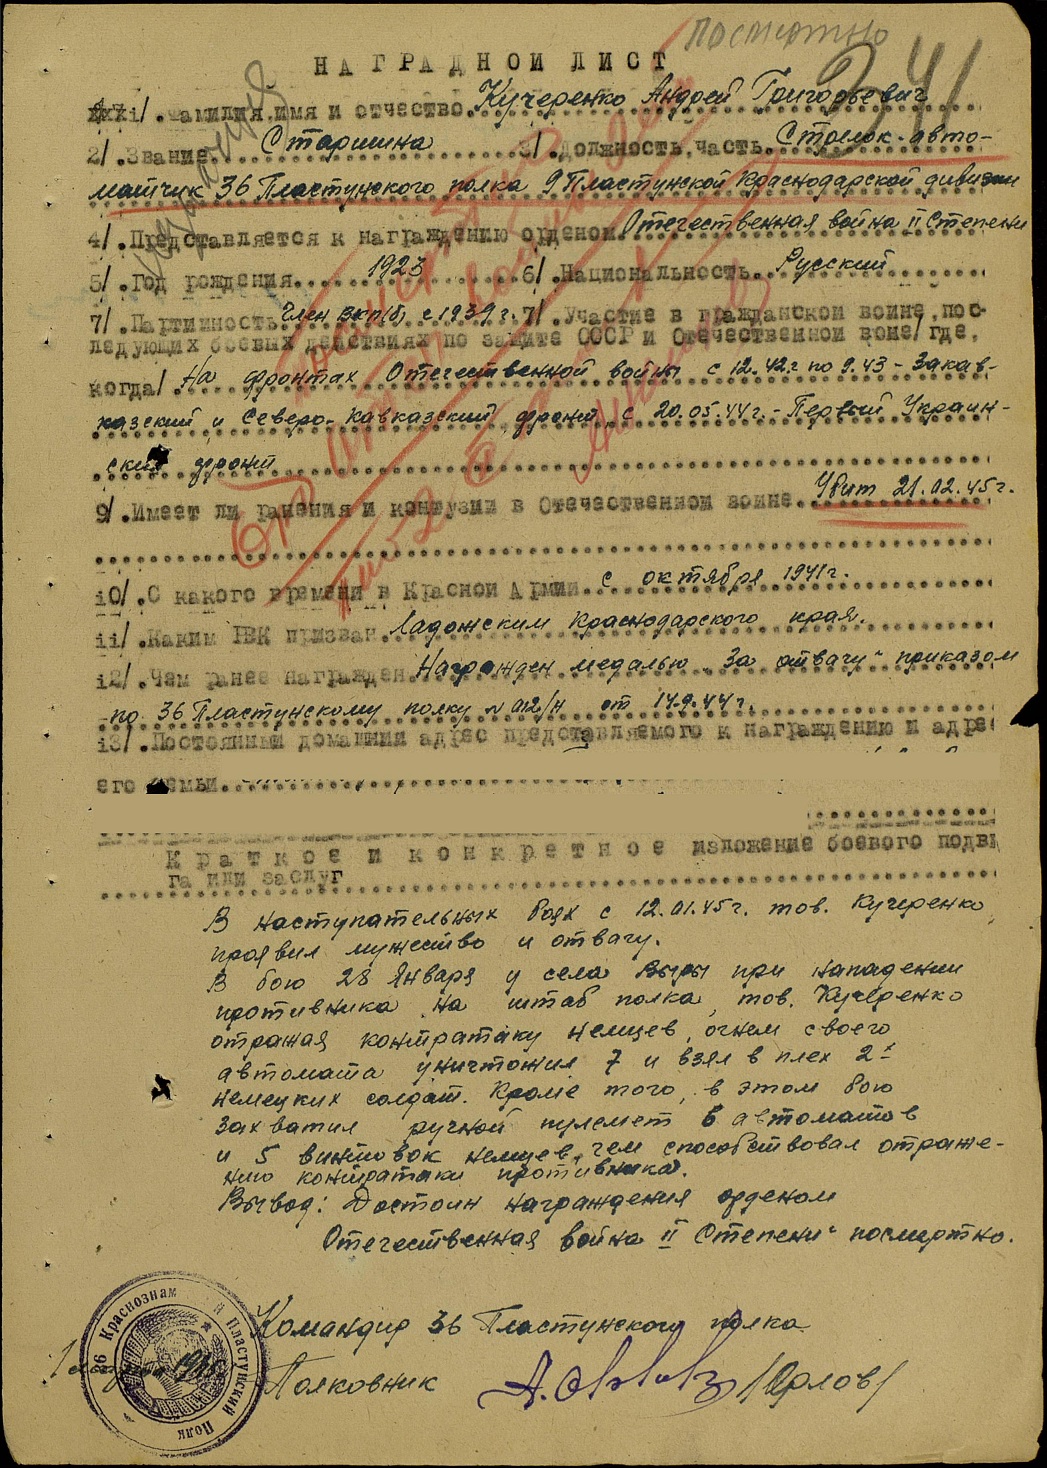 посмертно
НАГРАДНОЙ ЛИСТ
241
1/. Фамилия, имя и отчество. Кучеренко Андрей Григорьевич
2/. Звание Старшина 3/. Должность, часть. Стрелок-авто-
матчик 36 Пластунского полка 9 Пластунской Краснодарской дивизии
4/. Представляется к награждению орденом Отечественная война II Степени
5/. Год рождения 1923 6/. Национальность. Русский
7/. Партийность Член ВКП(б) с 1939 г. 7/. Участие в гражданской войне, пос-
ледующих боевых действиях по защите СССР и Отечественной войне/где,
когда/ На фронтах Отечественной войны с 12.42г по 9.43 - Закав-
казский и Северо-Кавказский фронт, с 20.05.44г. - Первый Украин-
ский фронт
9/. Имеет ли ранения и контузии в Отечественной войне. Убит 21.02.45г.
10/. С какого времени в Красной Армии с октября 1941г.
11/. Каким РВК призван Ладожским Краснодарского края.
12/. Чем ранее награжден Награжден медалью „За отвагу" приказом
по 36 Пластунскому полку № 012/н от 14.9.44г.
13/. Постоянный домашний адрес представляемого к награждению и адрес
его семьи
Краткое и конкретное изложение боевого подви
га или заслуг
В наступательных боях с 12.01.45г. тов. Кучеренко,
проявил мужество и отвагу.
В бою 28 Января у села Выры при нападении
противника на штаб полка, тов. Кучеренко
отражая контратаку немцев, огнем своего
автомата уничтожил 7 и взял в плен 2х
немецких солдат. Кроме того, в этом бою
захватил ручной пулемет 6 автоматов
и 5 винтовок немцев, чем способствовал отраже-
нию контратаки противника.
Вывод: Достоин награждения орденом
Отечественная война II Степени" посмертно.
Командир 36 Пластунского полка
Полковник /Орлов/
36 Краснознам й Пластунский Полк